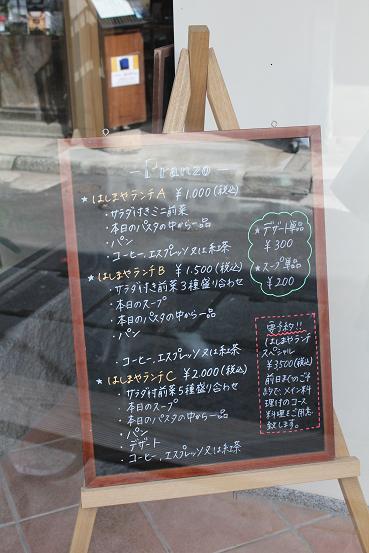 - Pranzo -
★ はしまやランチA ¥1.000(税込)
・サラダ付きミニ前菜
・本日のパスタの中から一品
・パン
・コーヒー、エスプレッソ又は紅茶
★ はしまやランチB ¥1.500(税込)
・サラダ付き前菜3種盛り合わせ
・本日のスープ
・本日のパスタの中から一品
・パン
・コーヒー、エスプレッソ又は紅茶
★ はしまやランチC ¥2.000(税込)
・サラダ付前菜5種盛り合わせ
・本日のスープ
・本日のパスタの中から一品
・パン
・デザート
・コーヒー、エスプレッソ又は紅茶
★デザート単品
¥300
★スープ単品
¥200
要予約!!
はしまやランチ
スペシャル
¥3500(税込)
前日までのご予
約で、メイン料
理付のコース
料理をご用意
致します。